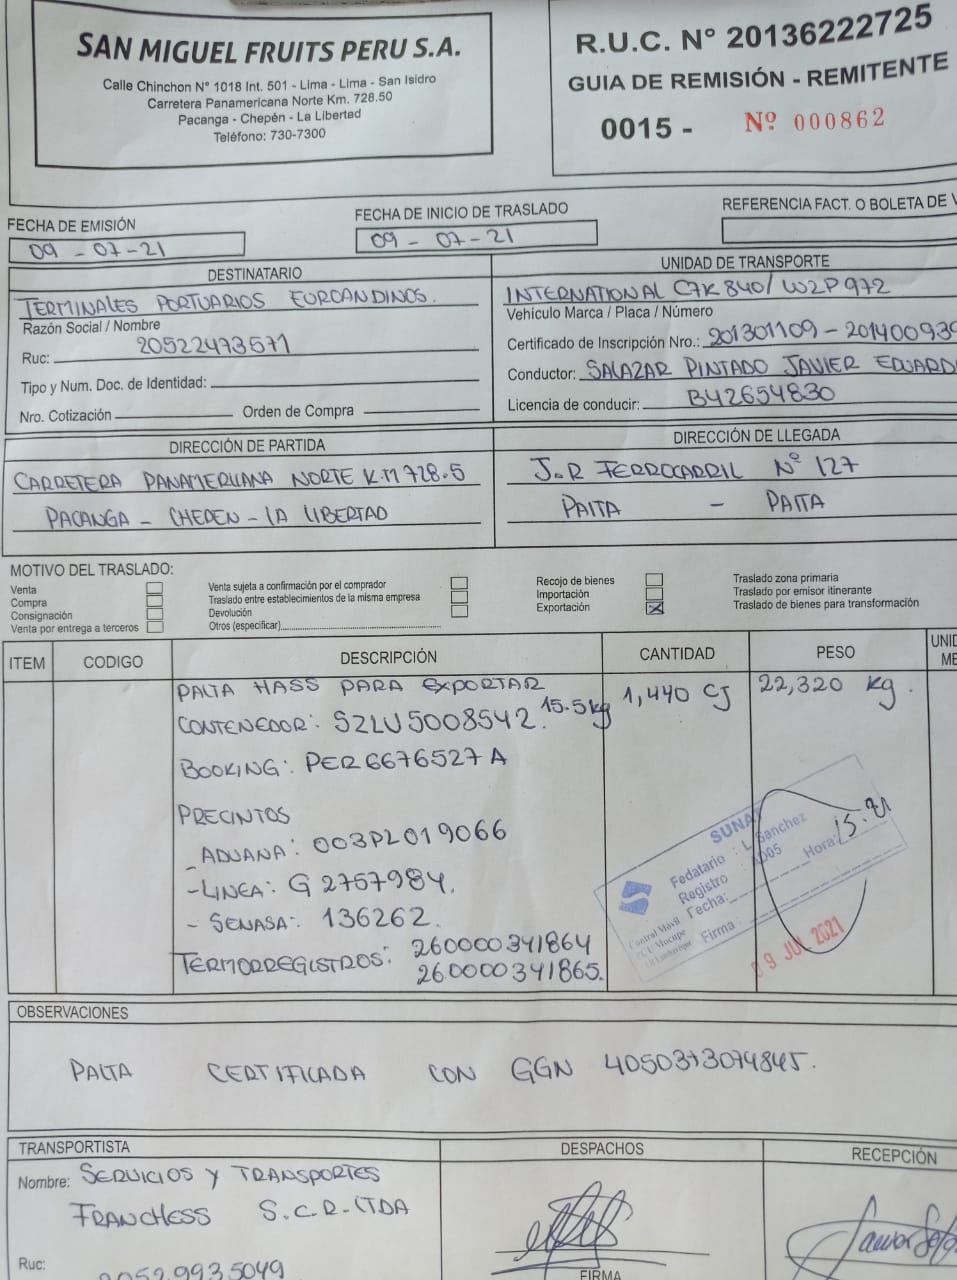 SAN MIGUEL FRUITS PERU S.A.
Calle Chinchon N° 1018 Int. 501 - Lima - Lima - San Isidro
Carretera Panamericana Norte Km. 728.50
Pacanga - Chepén - La Libertad
Teléfono: 730-7300
R.U.C. N° 20136222725
GUIA DE REMISIÓN - REMITENTE
0015 - Nº 000862
FECHA DE EMISIÓN
09 - 07 - 21
FECHA DE INICIO DE TRASLADO
09 - 07 - 21
REFERENCIA FACT. O BOLETA DE
DESTINATARIO
TERMINALES PORTUARIOS EUROANDINOS.
Razón Social / Nombre
Ruc: 20522473571
Tipo y Num. Doc. de Identidad:
Nro. Cotización Orden de Compra
UNIDAD DE TRANSPORTE
INTERNATIONAL C7K840/W2P972
Vehiculo Marca / Placa / Número
Certificado de Inscripción Nro.: 201301109 - 20140093
Conductor: SALAZAR PINTADO JAVIER EDUARD
Licencia de conducir: B42654830
DIRECCIÓN DE PARTIDA
CARRETERA PANAMERICANA NORTE K.M 728.5
PACANGA - CHEPEN - LA LIBERTAD
DIRECCIÓN DE LLEGADA
J.R FERROCARRIL N° 127
PAITA - PAITA
MOTIVO DEL TRASLADO:
Venta
Compra
Consignación
Venta por entrega a terceros
Venta sujeta a confirmación por el comprador
Traslado entre establecimientos de la misma empresa
Devolución
Otros (especificar)
Recojo de bienes
Importación
Exportación X
Traslado zona primaria
Traslado por emisor itinerante
Traslado de bienes para transformación
ITEM CODIGO DESCRIPCIÓN CANTIDAD PESO UNID
ME
PALTA HASS PARA EXPORTAR 1,440 CJ 22,320 kg.
15.5kg
CONTENEDOR: SZLU5008542.
BOOKING: PER6676527A
PRECINTOS
- ADUANA: 003PL019066
- LINEA: G2757984.
- SENASA: 136262.
TERMORREGISTROS: 260000341864
260000341865.
SUNAT
Fedatario : L. Sanchez
Registro : AD05
Fecha: Hora: 15:21
Control Móvil
Firma:
09 JUL 2021
OBSERVACIONES
PALTA CERTIFICADA CON GGN 4050373074845.
TRANSPORTISTA
Nombre: SERVICIOS Y TRANSPORTES
FRANCHESS S.C.R.LTDA
Ruc: 20529935049
DESPACHOS
FIRMA
RECEPCIÓN